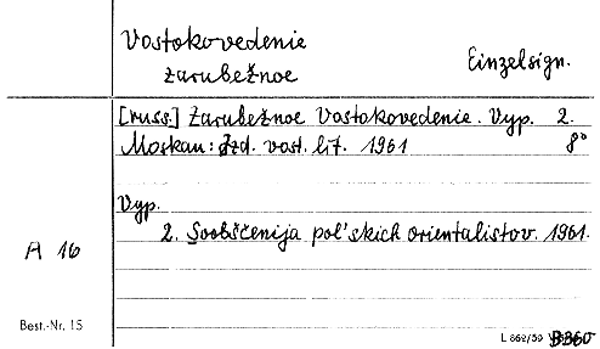 Vostokovedenie
zarubežnoe
Einzelsign.
[russ.] Zarubežnoe Vostokovedenie. Vyp. 2.
Moskau: Izd. vost. lit. 1961 8°
Vyp.
2. Soobščenija pol'skich orientalistov. 1961.
A 16
Best.-Nr. 15
L 862/59 B360